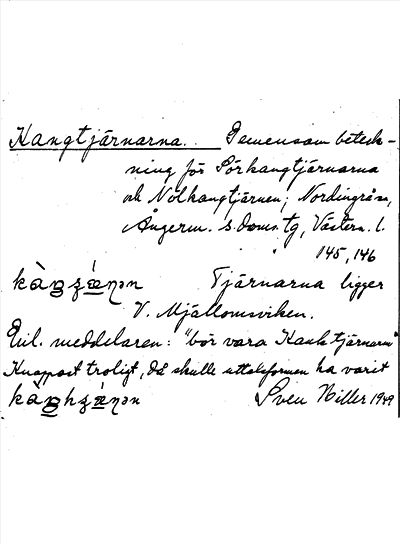 Kangtjärnarna. Gemensam beteck-
ning för Sörkangtjärnarna
och Nolkangtjärnen; Nordingrå sn,
Ångerm. s. doms. tg, Västern. l.
145, 146
Tjärnarna ligger
V. Mjällomsviken.
Enl. meddelaren: "bör vara Kanktjärnarna"
Knappast troligt, då skulle uttalsformen ha varit
Sven Hiller 1949